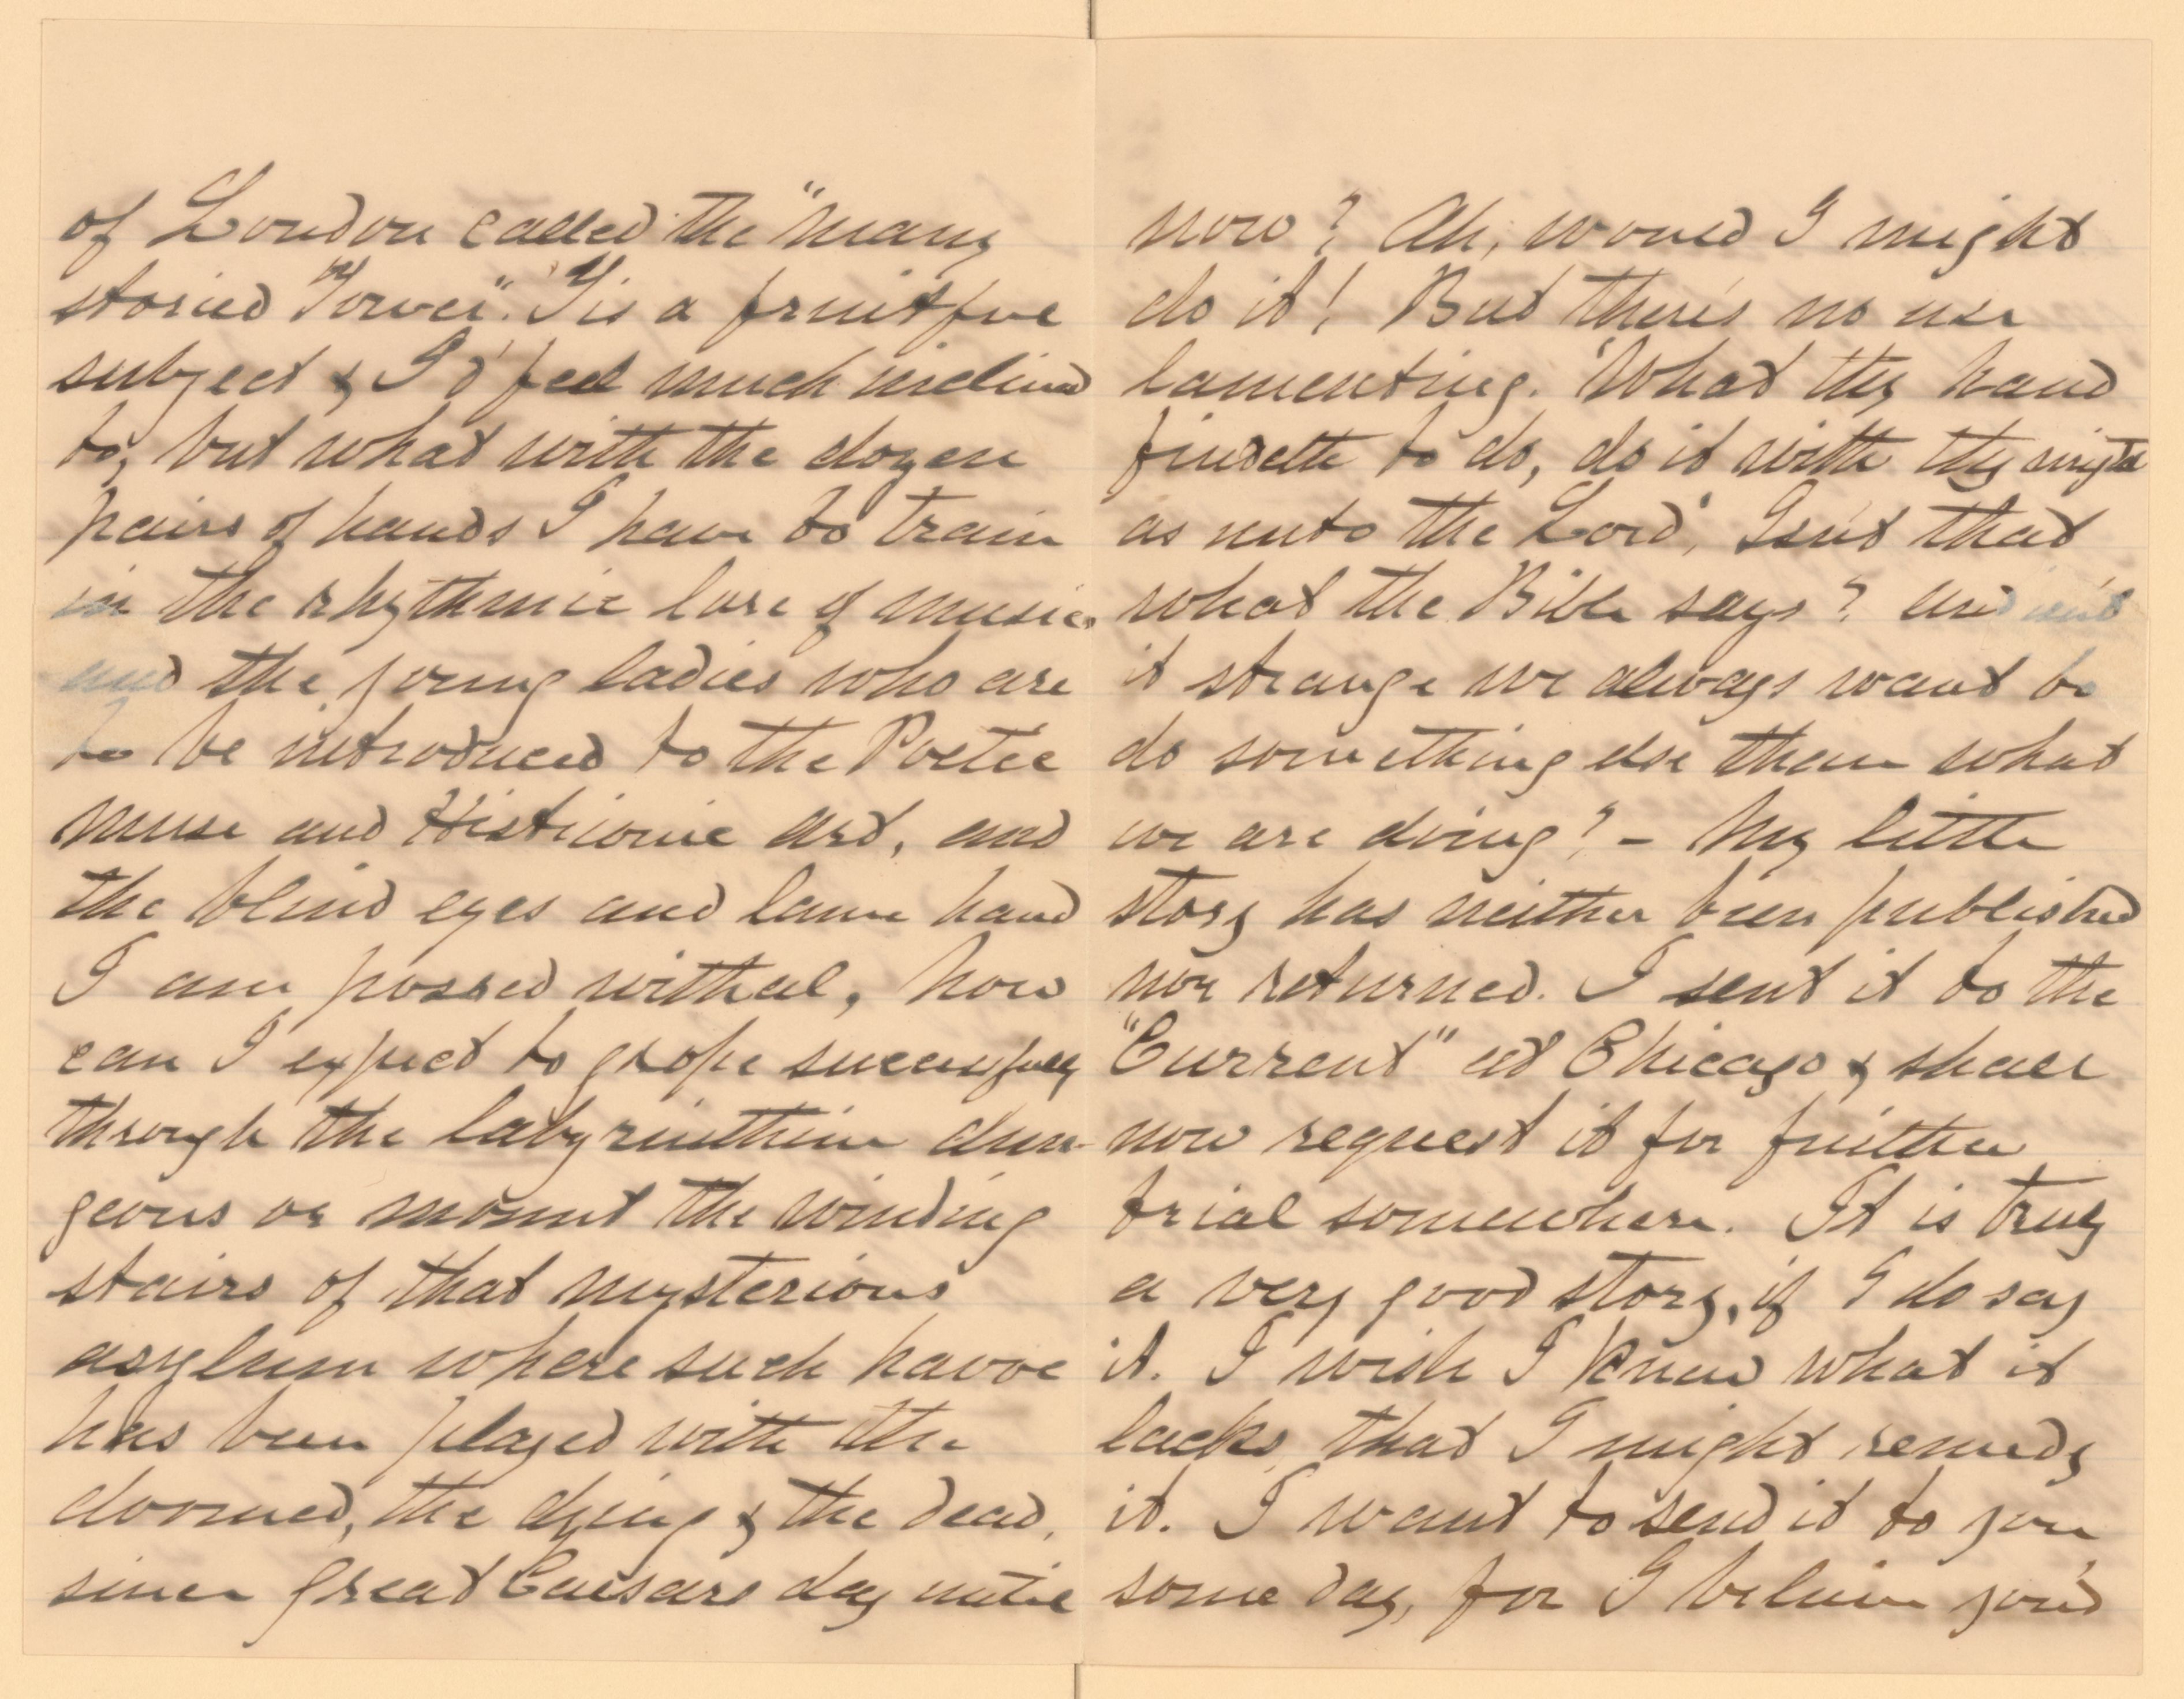 of London called the "many
storied Tower". 'Tis a fruitful
subject & I'd feel much inclined
to, but what with the dozen
pairs of hands I have to train
in the rhythmic lore of music,
and the young ladies who are
to be introduced to the Poetic
muse and Histrionic art, and
the blind eyes and lame hand
I am possed withal, how
can I expect to grope successfully
through the labyrinthine dun-
geons or mount the winding
stairs of that mysterious
asylum where such havoc
has been played with the
doomed, the dying & the dead,
since great Caesars day until
now? Ah, would I might
do it! But there's no use
lamenting. "What thy hand
findeth to do, do it with thy might
as unto the Lord", Isn't that
what the Bible says? and isn't
it strange we always want to
do something else than what
we are doing? - My little
story has neither been published
nor returned. I sent it to the
"Current" at Chicago & shall
now request it for further
trial somewhere. It is truly
a very good story, if I do say
it. I wish I knew what it
lacks, that I might remedy
it. I want to send it to you
some day, for I believe you'd